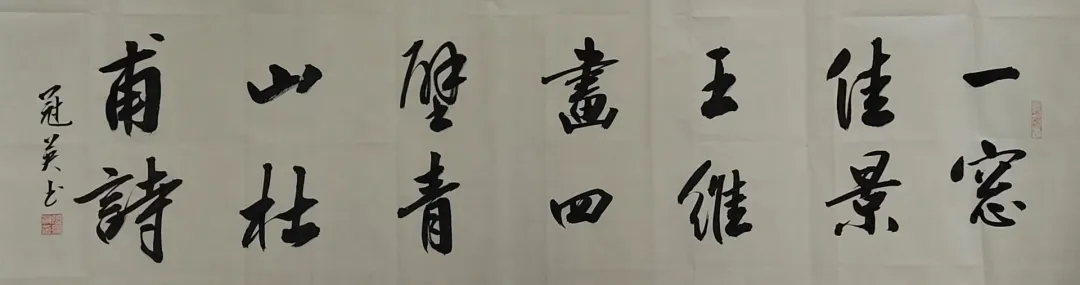 一窓
佳景
王維
畫四
壁青
山杜
甫詩
冠英书